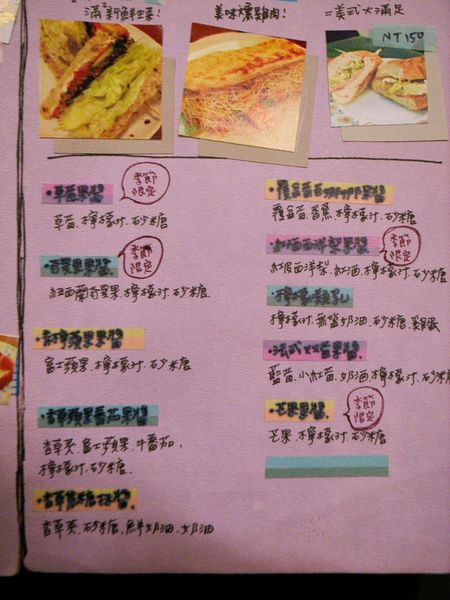 滿滿新鮮生菜!
美味燻雞肉!
=美式大滿足
NT150
·草莓果醬
季節
限定
草莓.檸檬汁.砂糖
·百果果醬
季節
限定
紐西蘭百果.檸檬汁.砂糖.
蘋果果醬
富士蘋果.檸檬汁.砂糖
·香草蘋果番茄果醬
香草莢.富士蘋果.牛番茄.
檸檬汁.砂糖.
·香草焦糖抹醬.
香草莢.砂糖.鮮奶油.奶油
果醬
覆盆莓.香蕉.檸檬汁.砂糖
·紅酒西洋梨果醬
季節
限定
紅皮西洋梨.紅酒.檸檬汁.砂糖
·檸檬凝乳
檸檬汁.無鹽奶油.砂糖.雞蛋
·法式 莓果醬.
藍莓.小紅莓.奶油.檸檬汁.砂糖
·芒果果醬.
季節
限定
芒果.檸檬汁.砂糖